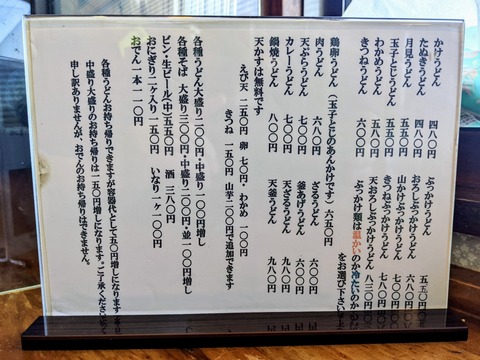 かけうどん 四八〇円
たぬきうどん 四八〇円
月見うどん 五五〇円
玉子とじうどん 五五〇円
わかめうどん 五八〇円
きつねうどん 六〇〇円
ぶっかけうどん 五五〇円
おろしぶっかけうどん
山かけぶっかけうどん 六八〇円
きつねぶっかけうどん 七〇〇円
天おろしぶっかけうどん 八三〇円
ぶっかけ類は温かいのか冷たいのか
をお選び下さいませ
鶏卵うどん(玉子とじのあんかけです)六五〇円
肉うどん 六八〇円
天ぷらうどん 七〇〇円
カレーうどん 七〇〇円
鍋焼うどん 八〇〇円
ざるうどん 六〇〇円
釜あげうどん 六〇〇円
天ざるうどん 九八〇円
天釜うどん 九八〇円
天かすは無料です
えび天 二五〇円 卵 七〇円・わかめ 一〇〇円
きつね 一五〇円 山芋 二〇〇円で追加できます
各種うどん大盛り二〇〇円・中盛り一〇〇円増し
各種そば 大盛り三〇〇円・中盛り二〇〇円・並一〇〇円増し
ビン・生ビール(中)五五〇円 酒 三八〇円
おにぎり(二ヶ入り)一五〇円 いなり一ヶ一〇〇円
おでん一本 一一〇円
各種うどんお持ち帰りできますが容器代として五〇円増しになります
中盛り大盛りのお持ち帰りは一五〇円増しになります。ご了承くださいませ
申し訳ありませんが、おでんのお持ち帰りはできません。